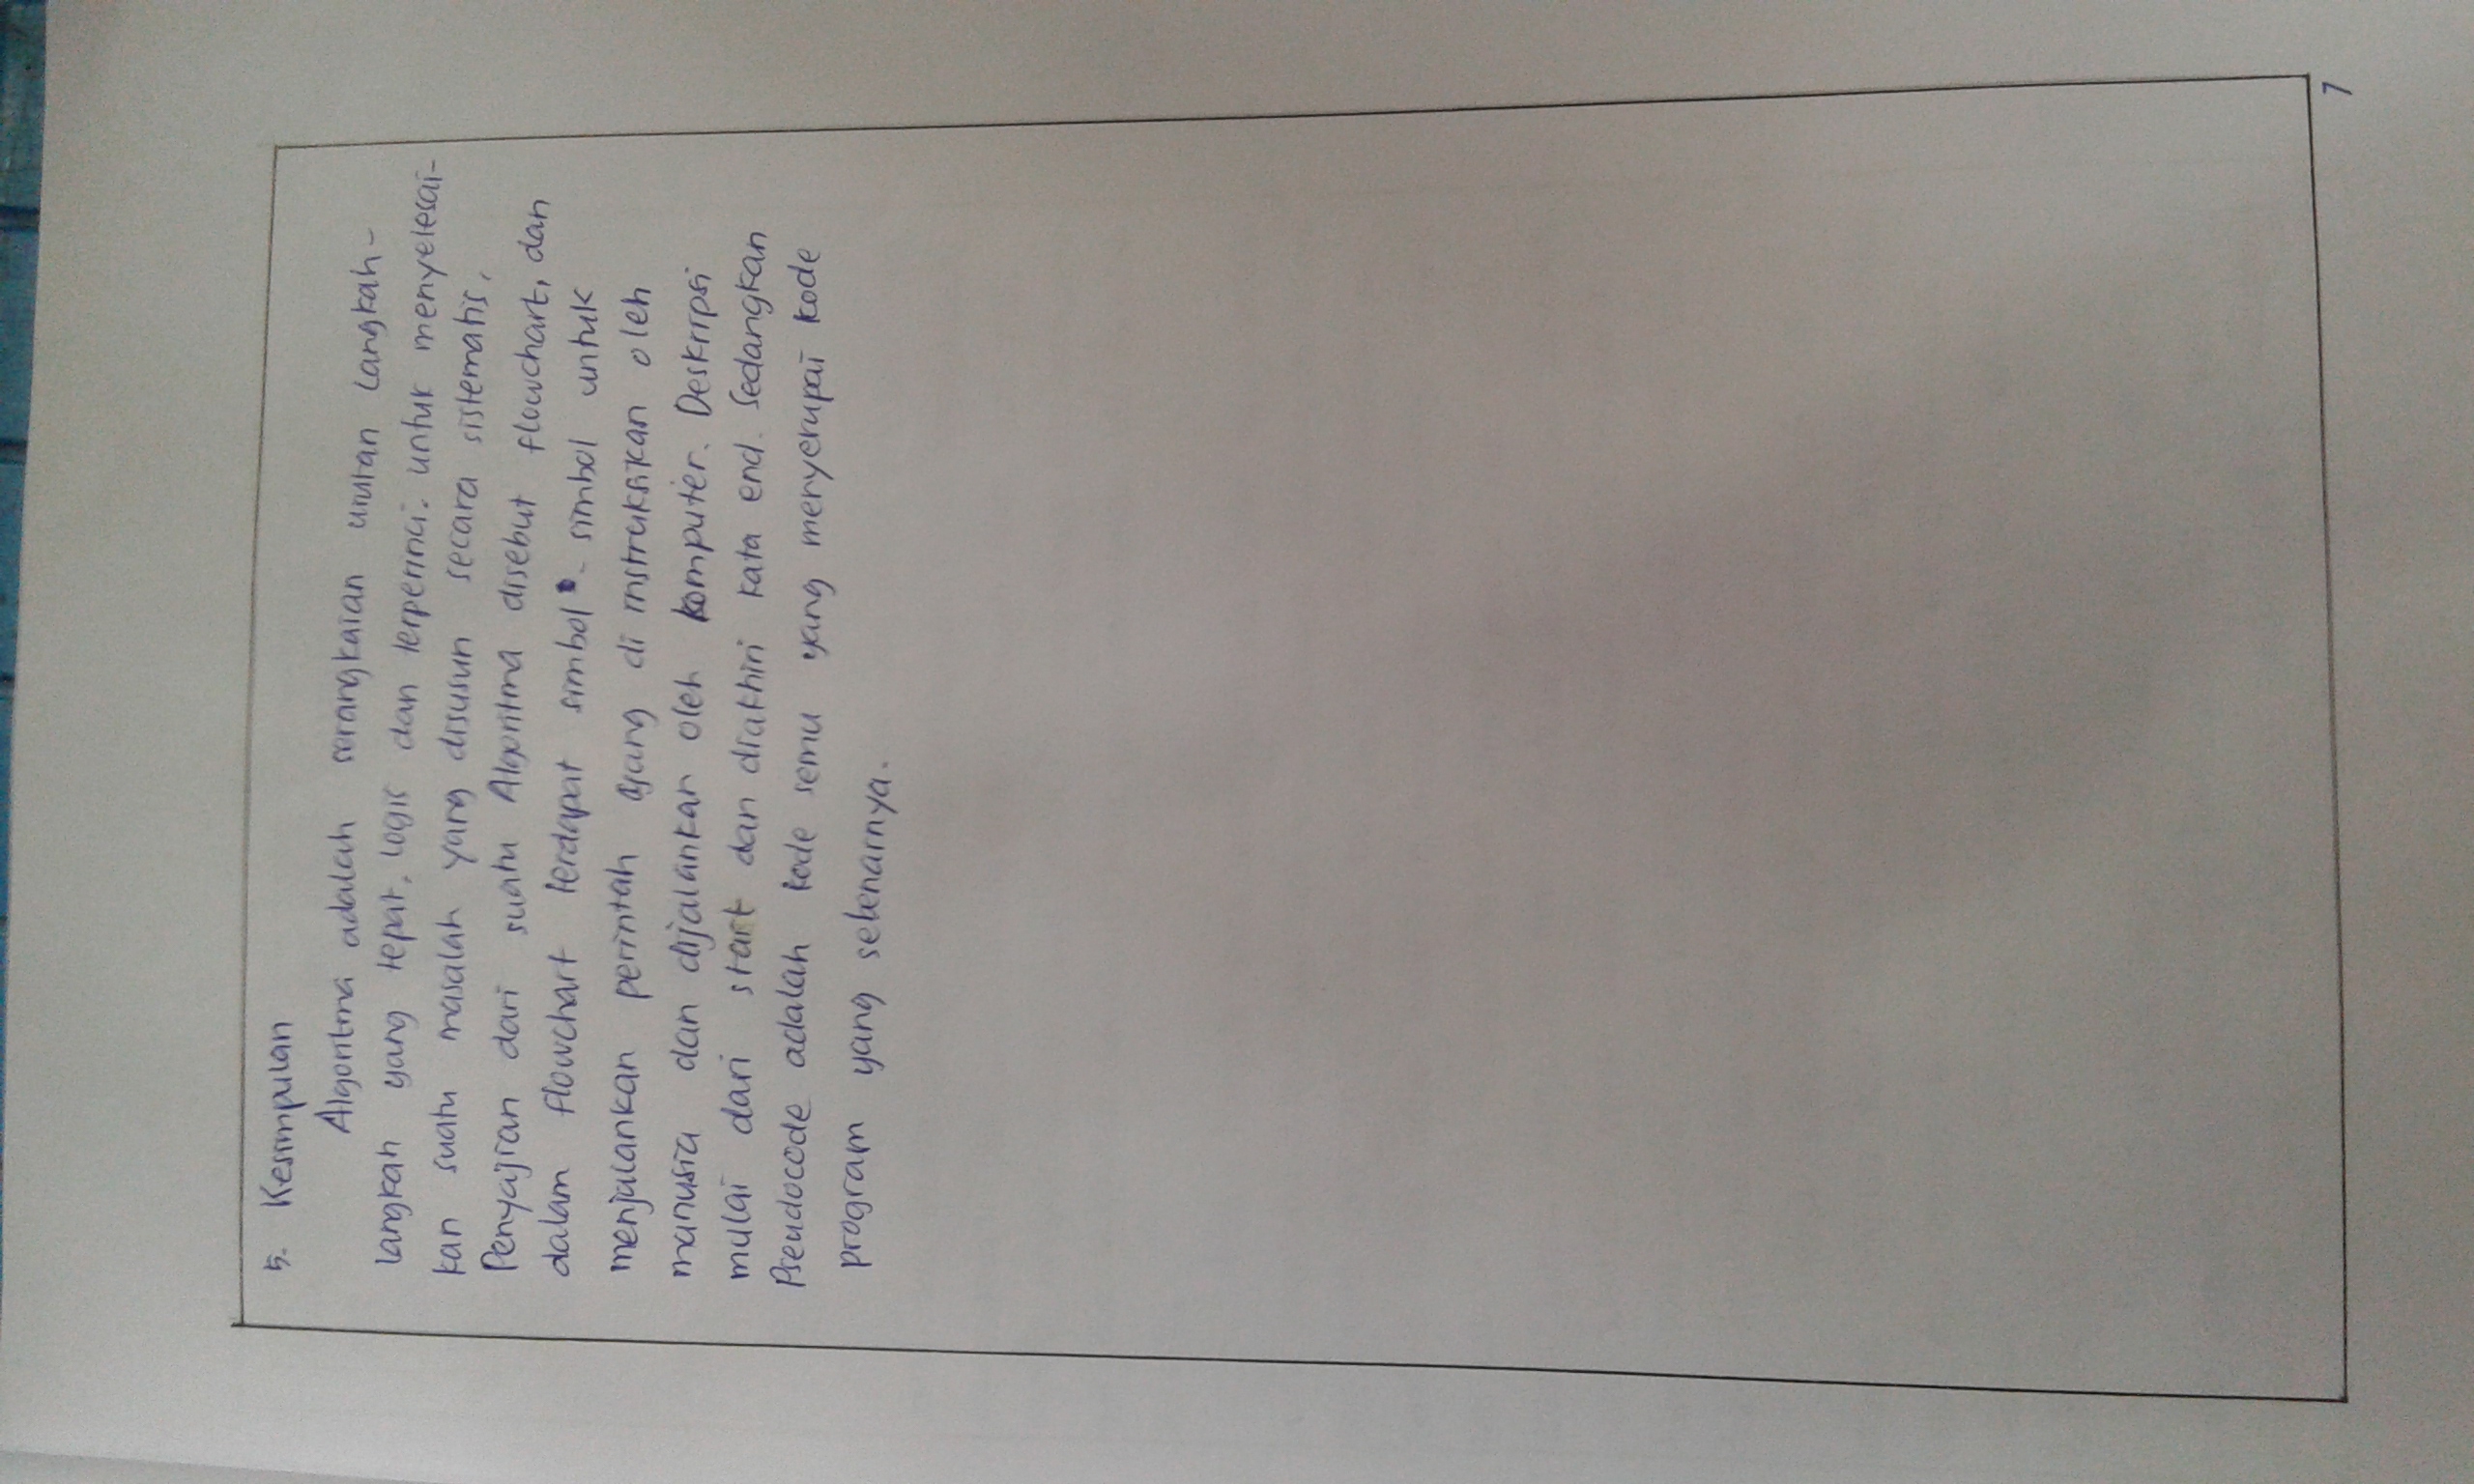 5. Kesimpulan
Algoritma adalah serangkaian urutan langkah-
langkah yang tepat, logis dan terperinci. untuk menyelesai-
kan suatu masalah yang disusun secara sistematis,
Penyajian dari suatu Algoritma disebut flowchart, dan
dalam flowchart terdapat simbol - simbol untuk
menjalankan perintah yang di instruksikan oleh
manusia dan dijalankan oleh komputer. Deskripsi
mulai dari start dan diakhiri kata end. Sedangkan
Pseudocode adalah kode semu yang menyerupai kode
program yang sebenarnya.
7